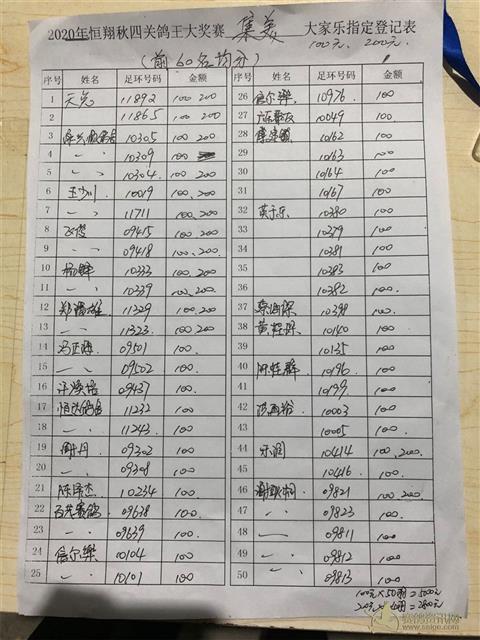 2020年恒翔秋四关鸽王大奖赛 集美 大家乐指定登记表
100元、200元
(前60名均分)
序号 姓名 足环号码 金额 序号 姓名 足环号码 金额
1 天苑 11892 100 200 26 信尔乐 10976 100
2 11865 100 200 27 10049 100
3 10305 100 200 28 10162 100
4 〃 10309 100 29 10163 100
5 〃 10304 100, 200 30 10164 100
6 王少川 10019 100, 200 31 10167 100
7 〃 11711 100, 200 32 黄于乐 10380 100
8 飞煌 09415 100, 200 33 10379 100
9 〃 09418 100, 200 34 10381 100
10 杨辉 10333 100, 200 35 10383 100
11 〃 10339 100, 200 36 10382 100
12 11329 100, 200 37 10398 100
13 〃 11323 100 200 38 10140 100
14 冯正海 09501 100 39 10135 100
15 〃 09502 100 40 10196 100
16 09437 100 41 10199 100
17 11232 100 42 洪西裕 10003 100
18 〃 11243 100 43 10005 100
19 谢丹 09302 100 44 乐润 10414 100, 200
20 〃 09308 100 45 10416 100
21 陈泽杰 10234 100 46 09821 100 200
22 09638 100 47 〃 09823 100
23 〃 09639 100 48 09811 100
24 信尔乐 10104 100 49 〃 09812 100
25 〃 10101 100 50 〃 09813 100
100元×50羽=5000元
赛鸽资讯网
www.saige.com